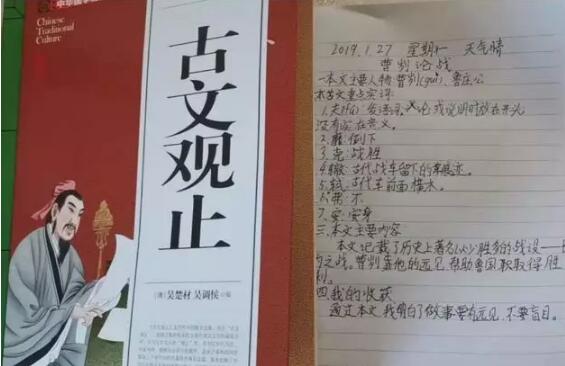 中华国学
Chinese
Traditional
Culture
古文观止
[清]吴楚材 吴调侯 编
2019.1.27 星期一 天气晴
曹刿论战
一本文主要人物曹刿(gui)、鲁庄公
本古文重点实词:
1.夫(fú)发语词,议论或说明时放在开头
没有实在意义。
2.靡:倒下
3.克:战胜
4.辙:古代战车留下的车痕迹。
5.轼:古代车前面横木。
6.弗:不
7.安:安身
三.本文主要内容
本文记载了历史上著名以少胜多的战役——
勺之战。曹刿靠他的远见,帮助鲁国取得胜
利。
四.我的收获
通过本文,我明白了做事要有远见,不要盲目。